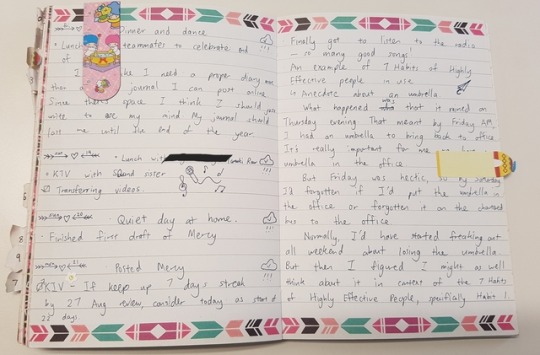 Dinner and dance
Lunch teammater to celebrate end
of
I I need a proper diary more
than journal I can post online
Since there space I think I should just
write to ease my mind My journal should
last me until the end of the year.
Lunch with
KTV with sister
Transferring videos
Quiet day at home.
Finished first draft of Mercy
Posted Mercy
KIV - If keep up 7 days streak
by 27 Aug review, consider today as start of
22 days
Finally got to listen to the radio
- so many good songs!
An example of 7 Habits of Highly
Effective people in use
Anecdote about an umbrella
What happened was that it rained on
Thursday evening That meant by Friday AM,
I had an umbrella to bring back to office
It's really important for me
umbrella in the office
But Friday was hectic, so by Saturday
I'd forgotten if I'd put the umbrella in
the office or forgotten it on the chartered
bus to the office.
Normally, I'd have started freaking out
all weekend about losing the umbrella.
But then I figured I might as well
think about it in context of the 7 Habits
of Highly Effective People, specifially Habit 1.
8
9
7